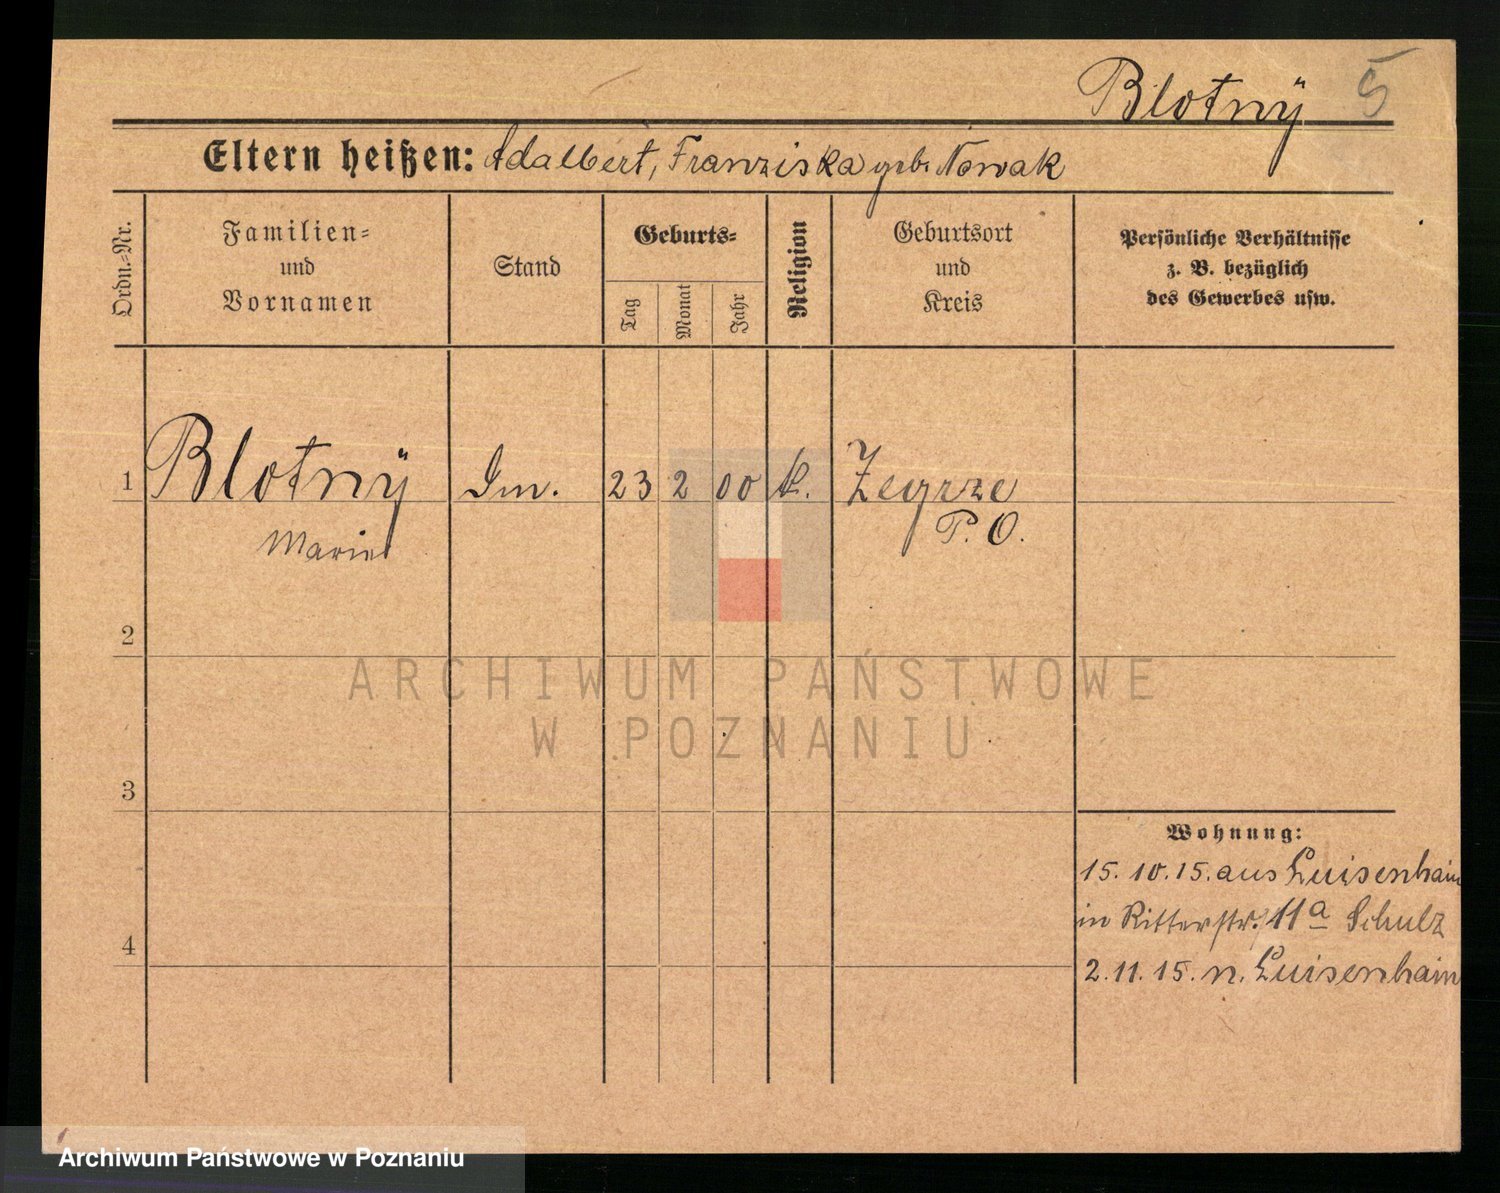 Blotnÿ 5
Eltern heißen: Adalbert, Franziska geb. Nowak
Ordn.-Nr.
Familien-
und
Vornamen
Stand
Geburts-
Tag
Monat
Jahr
Religion
Geburtsort
und
Kreis
Persönliche Verhältnisse
z. B. bezüglich
des Gewerbes usw.
1 Blotnÿ 23 2 00 k. Zegrze
Marie P. O.
2
3
4
Wohnung:
15. 10. 15. aus Luisenhain
in Ritterstr. 11a Schulz
2. 11. 15. n. Luisenhain
ARCHIWUM PAŃSTWOWE
W POZNANIU
Archiwum Państwowe w Poznaniu